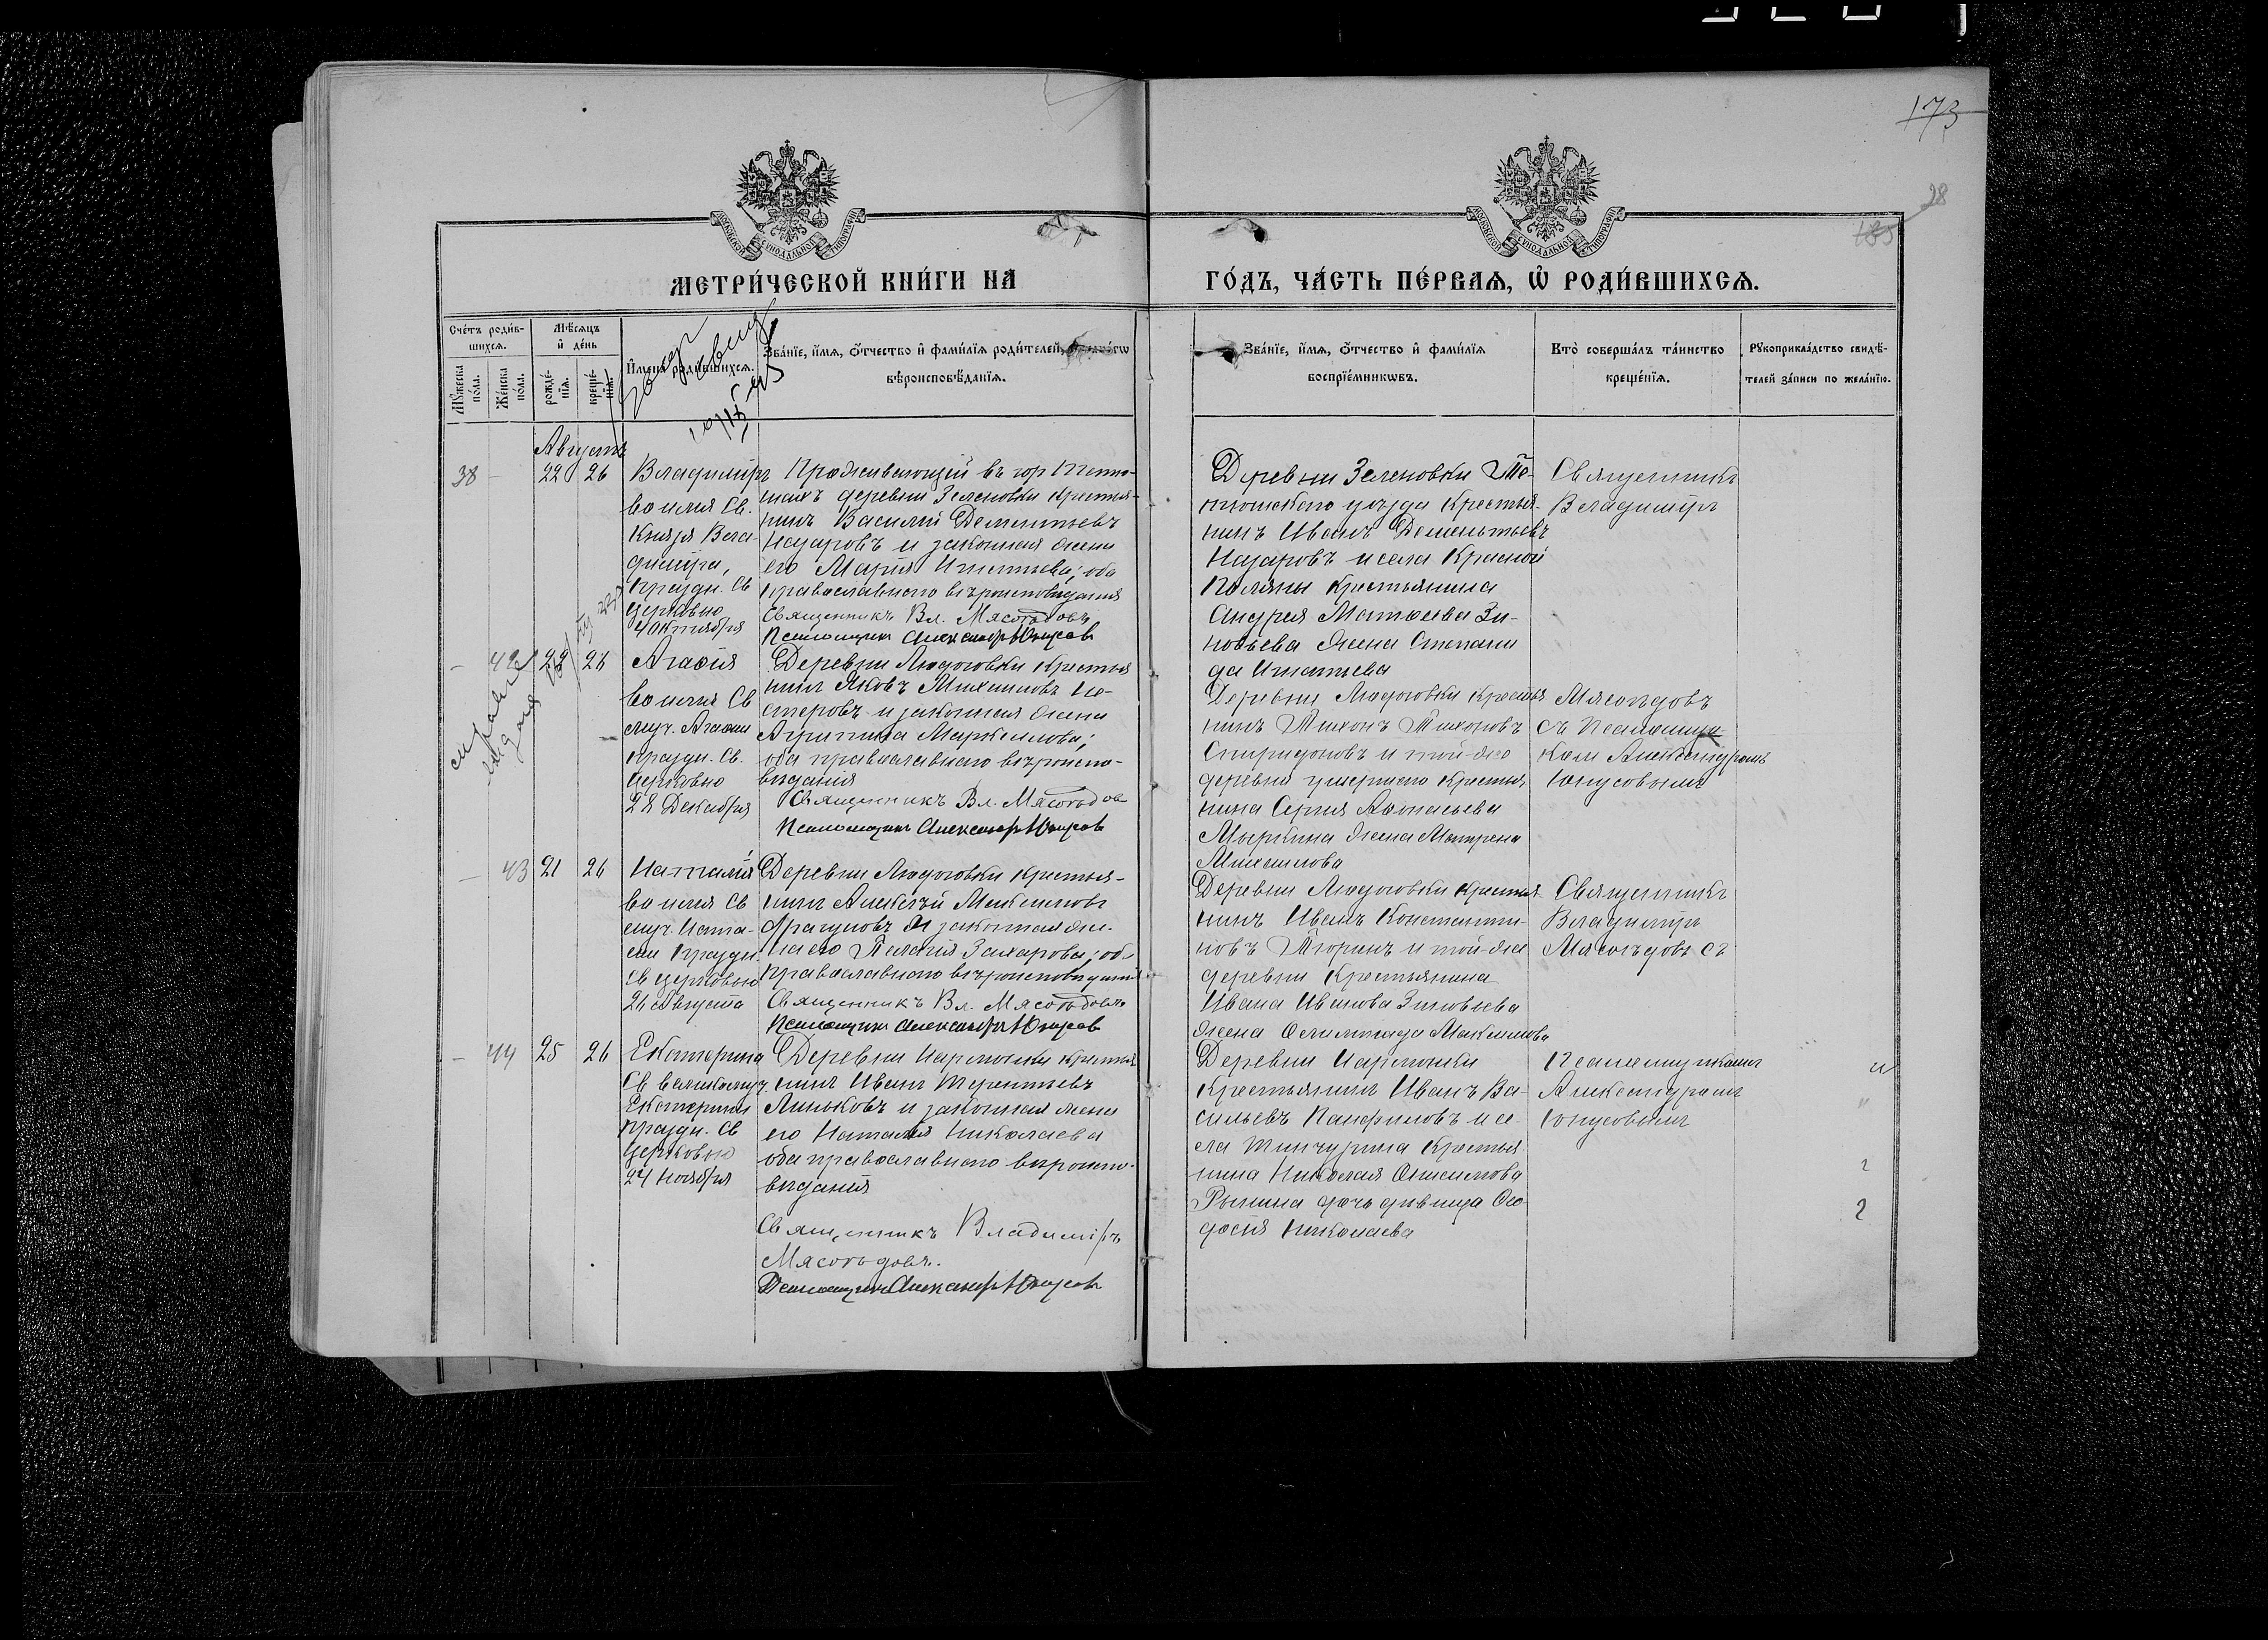 173
28
МЕТРИ́ЧЕСКОЙ КНИ́ГИ НА
ГО́ДЪ, ЧА́СТЬ ПЕ́РВАѦ, Ѡ҆ РОДИ́ВШИХСѦ.
Сче́тъ роди́в-
шихсѧ.
Мꙋ́жеска по́ла.
Же́нска по́ла.
Мѣ́сѧцъ
и҆ де́нь
рожде́-
нїѧ.
креще́-
нїѧ.
И҆мена̀ роди́вшихсѧ.
Зва́нїе, и҆́мѧ, ѻ҆́тчество и҆ фами́лїѧ роди́телей,
вѣроисповѣ́данїѧ.
Зва́нїе, и҆́мѧ, ѻ҆́тчество и҆ фами́лїѧ
воспрїе́мникѡвъ.
Кто̀ соверша́лъ та́инство
креще́нїѧ.
Рꙋкоприкла́дство свидѣ́-
телей за́писи по жела́нїю.
Августъ
38 - 22 26
Владиміръ
во имя Св.
Князя Вла-
диміра,
праздн. Св
Церковью
4 Октября
Проживающій въ гор Тетю-
шахъ деревни Зеленовки крестья-
нинъ Василій Дементьевъ
Назаровъ и законная жена
его Марія Игнатьева; оба
православнаго вѣроисповѣданія
Священникъ Вл. Мясоѣдовъ
Псаломщикъ Александръ Юнусовъ
Деревни Зеленовки Те-
тюшскаго уѣзда крестья-
нинъ Иванъ Дементьевъ
Назаровъ и села Красной
Поляны крестьянина
Андрея Матѳеева Зи-
новьева жена Степани
да Игнатьева
Священникъ
Владиміръ
- 42 26
Агаѳія
во имя Св
муч. Агаѳіи
праздн. Св.
Церковью
28 Декабря
Деревни Людоговки крестья
нинъ Яковъ Михаиловъ Не-
стеровъ и законная жена
Агрипина Маркелова;
оба православнаго вѣроиспо-
вѣданія
Священникъ Вл. Мясоѣдов
Псаломщикъ Александръ Юнусовъ
Деревни Людоговки крестья
нинъ Тихонъ Тихоновъ
Спиридоновъ и той-же
деревни умершаго крестья
нина Сергія Аѳанасьева
Мыркина жена Матрена
Михаилова
Мясоѣдовъ
съ Псаломщи
комъ Александромъ
Юнусовымъ
- 43 21 26
Наталія
во имя Св
муч. Ната-
ліи праздн.
Св Церковью
26 Августа
Деревни Людоговки крестья-
нинъ Алексѣй Максимовъ
Драгуновъ и законная же-
на его Пелагія Захарова; оба
православнаго вѣроисповѣданія
Священникъ Вл. Мясоѣдовъ
Псаломщикъ Александръ Юнусовъ
Деревни Людоговки крестья
нинъ Иванъ Константи-
новъ Тюринъ и той-же
деревни крестьянина
Ивана Иванова Зиновьева
жена Максимова
Священникъ
Владиміръ
Мясоѣдовъ съ
- 44 25 26
Екатерина
Св великомуч.
Екатерины
праздн. Св
Церковью
24 Ноября
Деревни крестья
нинъ Иванъ Терентьевъ
Линьковъ и законная жена
его Наталія Николаева
оба православнаго вѣроиспо-
вѣданія
Священникъ Владиміръ
Мясоѣдовъ.
Псаломщикъ Александръ Юнусовъ
Деревни
крестьянинъ Иванъ Ва-
сильевъ Панфиловъ и се-
ла Тинчурина крестья
нина Николая Онисимова
Рынина дочь дѣвица Ѳео
досія Николаева
Псаломщикомъ
Александромъ
Юнусовымъ